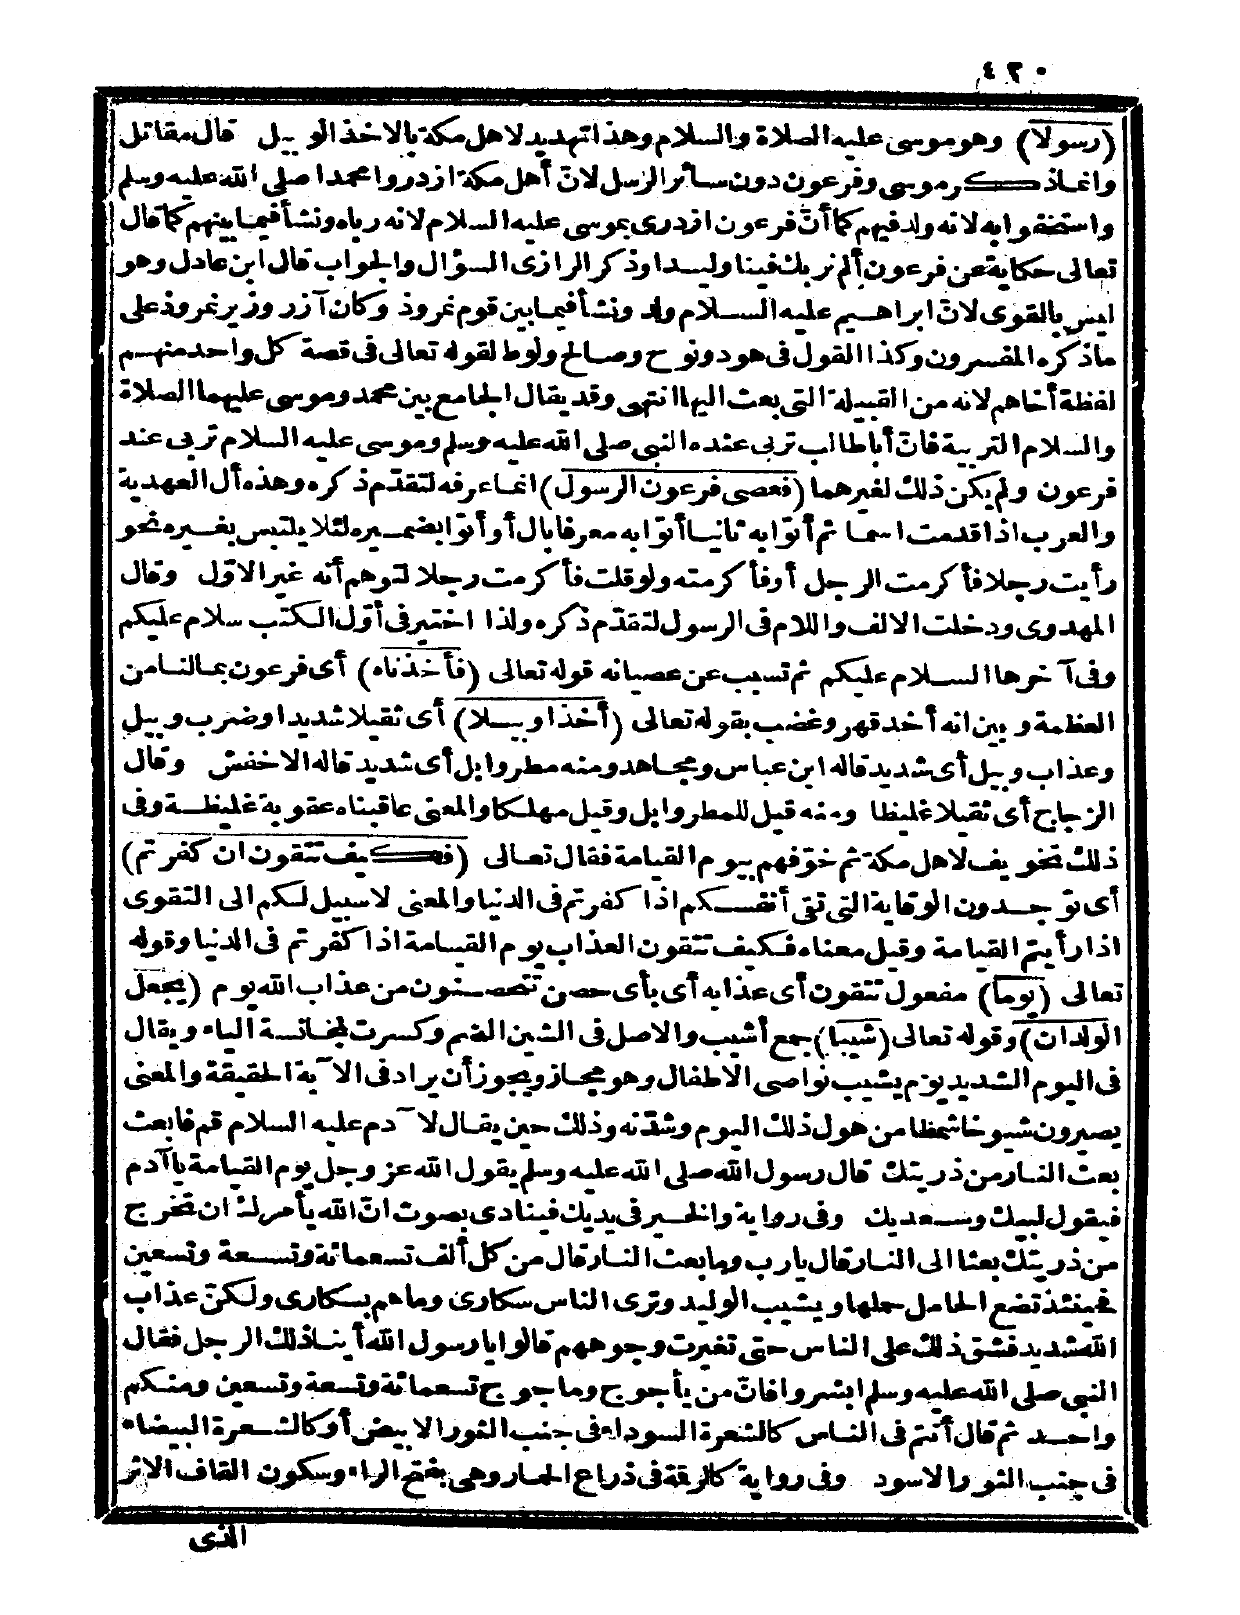 ٤٢٠
(رسولا) وهو موسى عليه الصلاة والسلام وهذا تهديد لاهل مكة بالاخذ الوبيل قال مقاتل
وانما ذكر موسى وفرعون دون سائر الرسل لان أهل مكة ازدروا محمدا صلى الله عليه وسلم
واستخفوا به لانه ولد فيهم كما أنّ فرعون ازدرى بموسى عليه السلام لانه رباه ونشأ فيما بينهم كما قال
تعالى حكاية عن فرعون ألم نربك فينا وليدا وذكر الرازى السؤال والجواب قال ابن عادل وهو
ليس بالقوى لانّ ابراهيم عليه السلام ولد ونشأ فيما بين قوم نمروذ وكان آزر وزير نمروذ على
ماذكره المفسرون وكذا القول فى هود ونوح وصالح ولوط لقوله تعالى فى قصة كل واحد منهم
لفظة أخاهم لانه من القبيلة التى بعث اليها انتهى وقد يقال الجامع بين محمد وموسى عليهما الصلاة
والسلام التربية فانّ أبا طالب تربى عنده النبى صلى الله عليه وسلم وموسى عليه السلام تربى عند
فرعون ولم يكن ذلك لغيرهما (فعصى فرعون الرسول) انما عرفه لتقدّم ذكره وهذه أل العهدية
والعرب اذا قدمت اسما ثم أتوا به ثانيا أتوا به معرفا بال أو أتوا بضميره لئلا يلتبس بغيره نحو
رأيت رجلا فأكرمت الرجل أو فأكرمته ولو قلت فأكرمت رجلا لتوهم أنه غير الاوّل وقال
المهدوى ودخلت الالف واللام فى الرسول لتقدّم ذكره ولذا اختير فى أوّل الكتب سلام عليكم
وفى آخرها السلام عليكم ثم تسبب عن عصيانه قوله تعالى (فأخذناه) أى فرعون بمالنا من
العظمة وبين انه أخذ قهر وغضب بقوله تعالى (أخذا وبيلا) أى ثقيلا شديدا وضرب وبيل
وعذاب وبيل أى شديد قاله ابن عباس ومجاهد ومنه مطر وابل أى شديد قاله الاخفش وقال
الزجاج أى ثقيلا غليظا ومنه قيل للمطر وابل وقيل مهلكا والمعنى عاقبناه عقوبة غليظة وفى
ذلك تخويف لاهل مكة ثم خوّفهم بيوم القيامة فقال تعالى (فكيف تتقون ان كفرتم)
أى توجدون الوقاية التى تقى أنفسكم اذا كفرتم فى الدنيا والمعنى لا سبيل لكم الى التقوى
اذا رأيتم القيامة وقيل معناه فكيف تتقون العذاب يوم القيامة اذا كفرتم فى الدنيا وقوله
تعالى (يوما) مفعول تتقون أى عذابه أى بأى حصن تتحصنون من عذاب الله يوم (يجعل
الولدان) وقوله تعالى (شيبا) جمع أشيب والاصل فى الشين الضم وكسرت لمجانسة الياء ويقال
فى اليوم الشديد يوم يشيب نواصى الاطفال وهو مجاز ويجوز أن يراد فى الآية الحقيقة والمعنى
يصيرون شيوخا شمطا من هول ذلك اليوم وشدّته وذلك حين يقال لآدم عليه السلام قم فابعث
بعث النار من ذريتك قال رسول الله صلى الله عليه وسلم يقول الله عز وجل يوم القيامة يا آدم
فيقول لبيك وسعديك وفى رواية والخير فى يديك فينادى بصوت انّ الله يأمرك ان تخرج
من ذريتك بعثا الى النار قال يارب وما بعث النار قال من كل ألف تسعمائة وتسعة وتسعين
فحينئذ تضع الحامل حملها ويشيب الوليد وترى الناس سكارى وما هم بسكارى ولكنّ عذاب
الله شديد فشق ذلك على الناس حتى تغيرت وجوههم قالوا يا رسول الله أينا ذلك الرجل فقال
النبى صلى الله عليه وسلم ابشروا فانّ من يأجوج وماجوج تسعمائة وتسعة وتسعين ومنكم
واحد ثم قال أنتم فى الناس كالشعرة السوداء فى جنب الثور الابيض أو كالشعرة البيضاء
فى جنب الثور الاسود وفى رواية كالرقة فى ذراع الحمار وهى بفتح الراء وسكون القاف الاثر
الذى